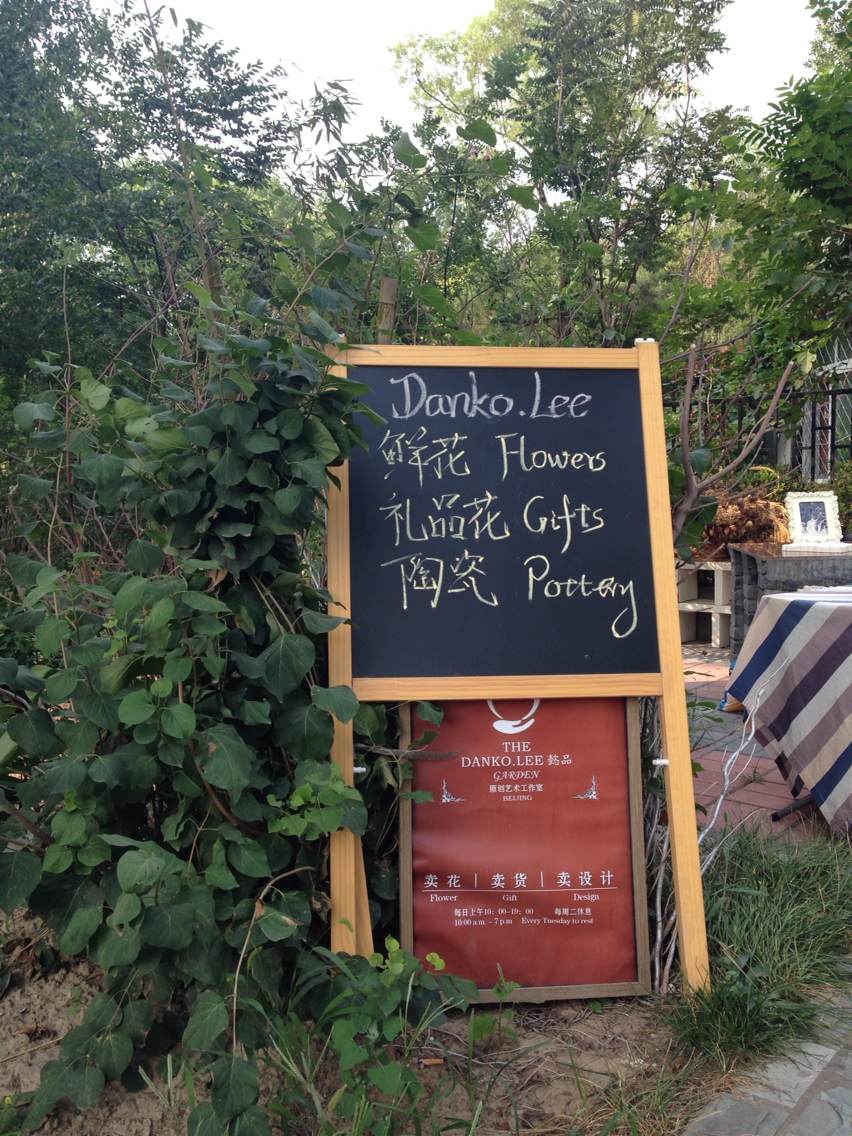 Danko.Lee
鲜花 Flowers
礼品花 Gifts
陶瓷 Pottery
THE
DANKO.LEE 懿品
GARDEN
原创艺术工作室
BEIJING
卖花 | 卖货 | 卖设计
Flower Gift Design
每日上午10：00-19：00 每周二休息
10:00 a.m. - 7 p.m Every Tuesday to rest